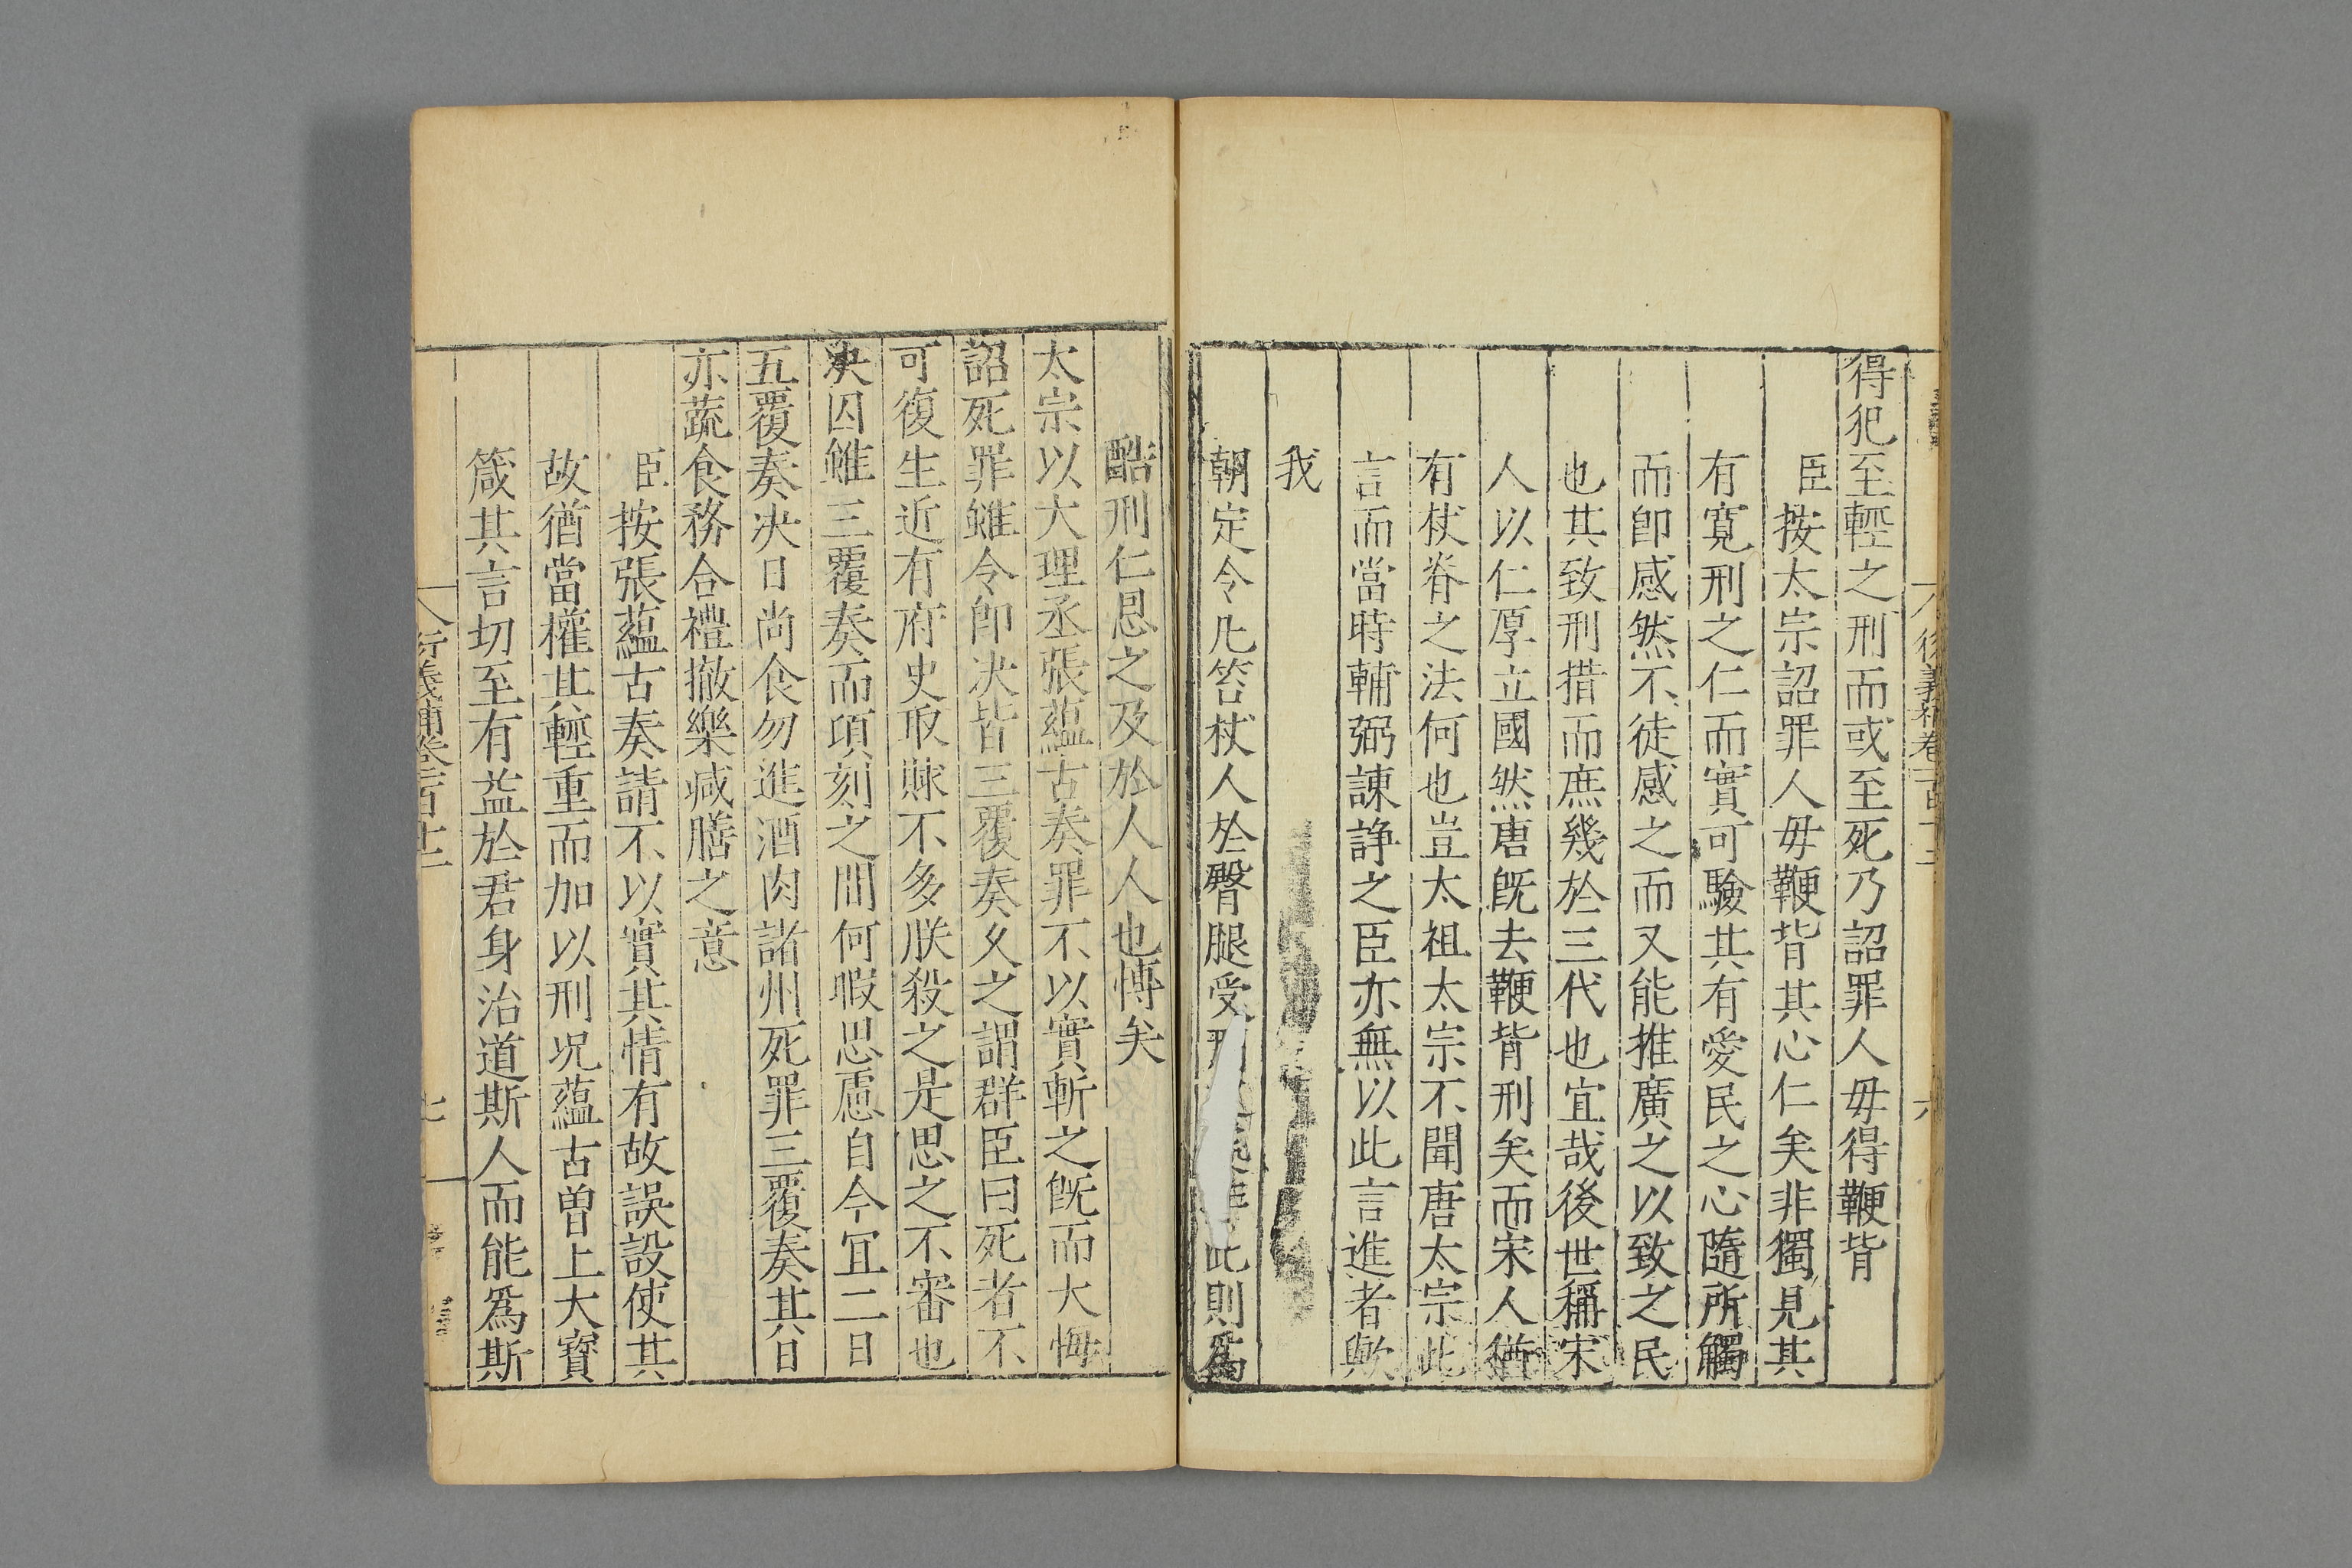 得犯至輕之刑而或至死乃詔罪人毋得鞭背
臣按太宗詔罪人毋鞭背其心仁矣非獨見其
有寬刑之仁而實可驗其有愛民之心隨所觸
而卽感然不徒感之而又能推廣之以致之民
也其致刑措而庶幾於三代也宜哉後世稱宋
人以仁厚立國然唐旣去鞭背刑矣而宋人猶
有杖脊之法何也豈太祖太宗不聞唐太宗此
言而當時輔弼諫諍之臣亦無以此言進者歟
我
朝定令凡笞杖人於臀腿受刑此則爲
酷刑仁恩之及於人人也愽矣
太宗以大理丞張蘊古奏罪不以實斬之旣而大悔
詔死罪雖令卽决皆三覆奏久之謂群臣曰死者不
可復生近有府史取賕不多朕殺之是思之不審也
决囚雖三覆奏而頃刻之間何暇思慮自今宜二日
五覆奏决日尚食勿進酒肉諸州死罪三覆奏其日
亦蔬食務合禮撤樂减膳之意
臣按張蘊古奏請不以實其情有故誤設使其
故猶當權其輕重而加以刑况蘊古曽上大寳
箴其言切至有益於君身治道斯人而能爲斯
衍義補卷一百十二
七